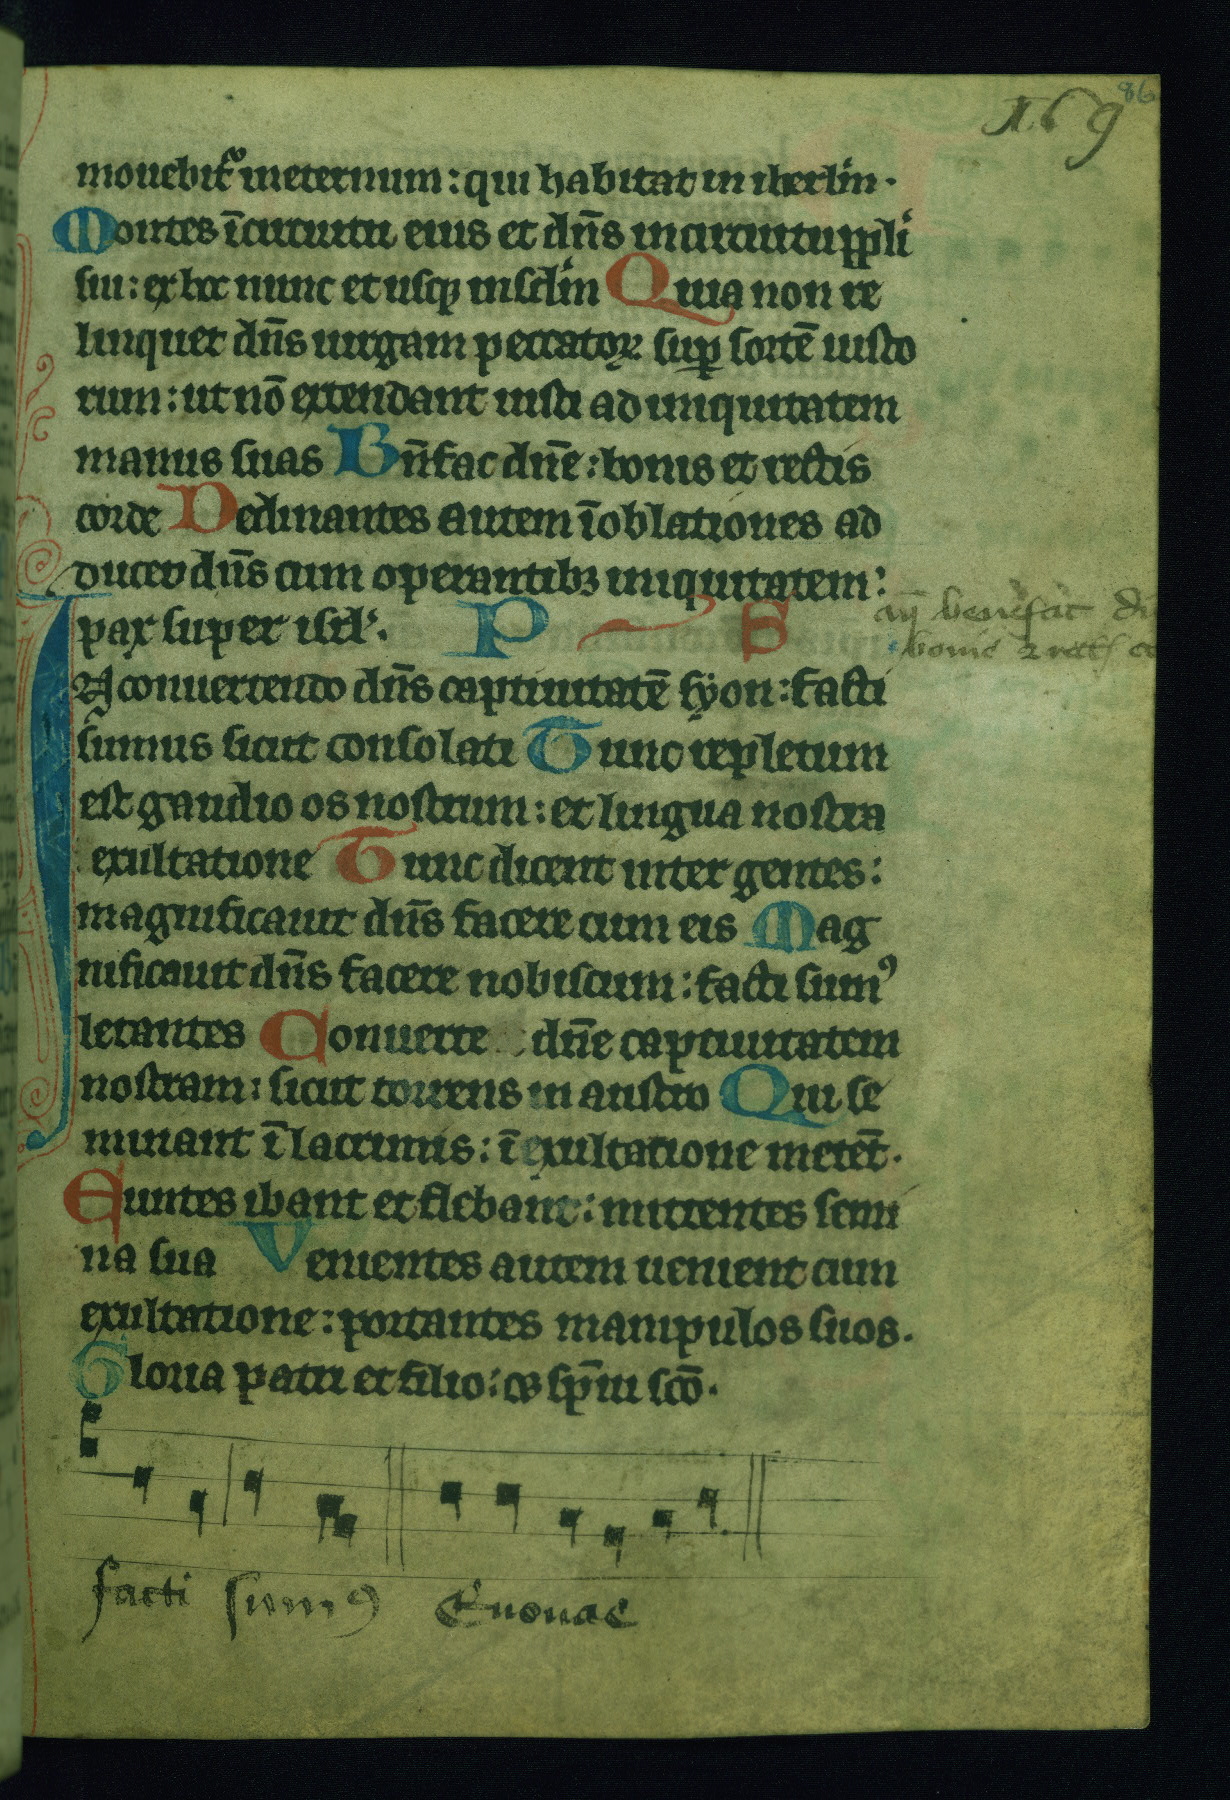 169
86
mouebit᷑ ineternum : qui habitat in iherlm̄ .
Montes īcircuitu eius et dn̄s incircuitu ppli
sui : ex hoc nunc et usqꝫ insclm̄ Quia non re
linquet dn̄s uirgam peccatoꝝ sup̱ sortē iusto
rum : ut nō extendant iusti ad iniquitatem
manus suas Bn̄fac dn̄e : bonis et rectis
corde Declinantes autem īoblationes ad
ducet dn̄s cum operantibꝫ iniquitatem :
pax super isrl̄ . P S
an̄ benefac
bonis
In conuertendo dn̄s captiuitatē syon : facti
sumus sicut consolati Tunc repletum
est gaudio os nostrum : et lingua nostra
exultatione Tunc dicent inter gentes :
magnificauit dn̄s facere cum eis Mag
nificauit dn̄s facere nobiscum : facti sumꝰ
letantes Conuerte dn̄e captiuitatem
nostram : sicut torrens in austro Qui se
minant ī lacrimis : ī exultatione metēt .
Euntes ibant et flebant : mittentes semi
na sua Venientes autem uenient cum
exultatione : portantes manipulos suos .
Gloria patri et filio : et sp̄iui scō .
facti sumꝰ Euouae